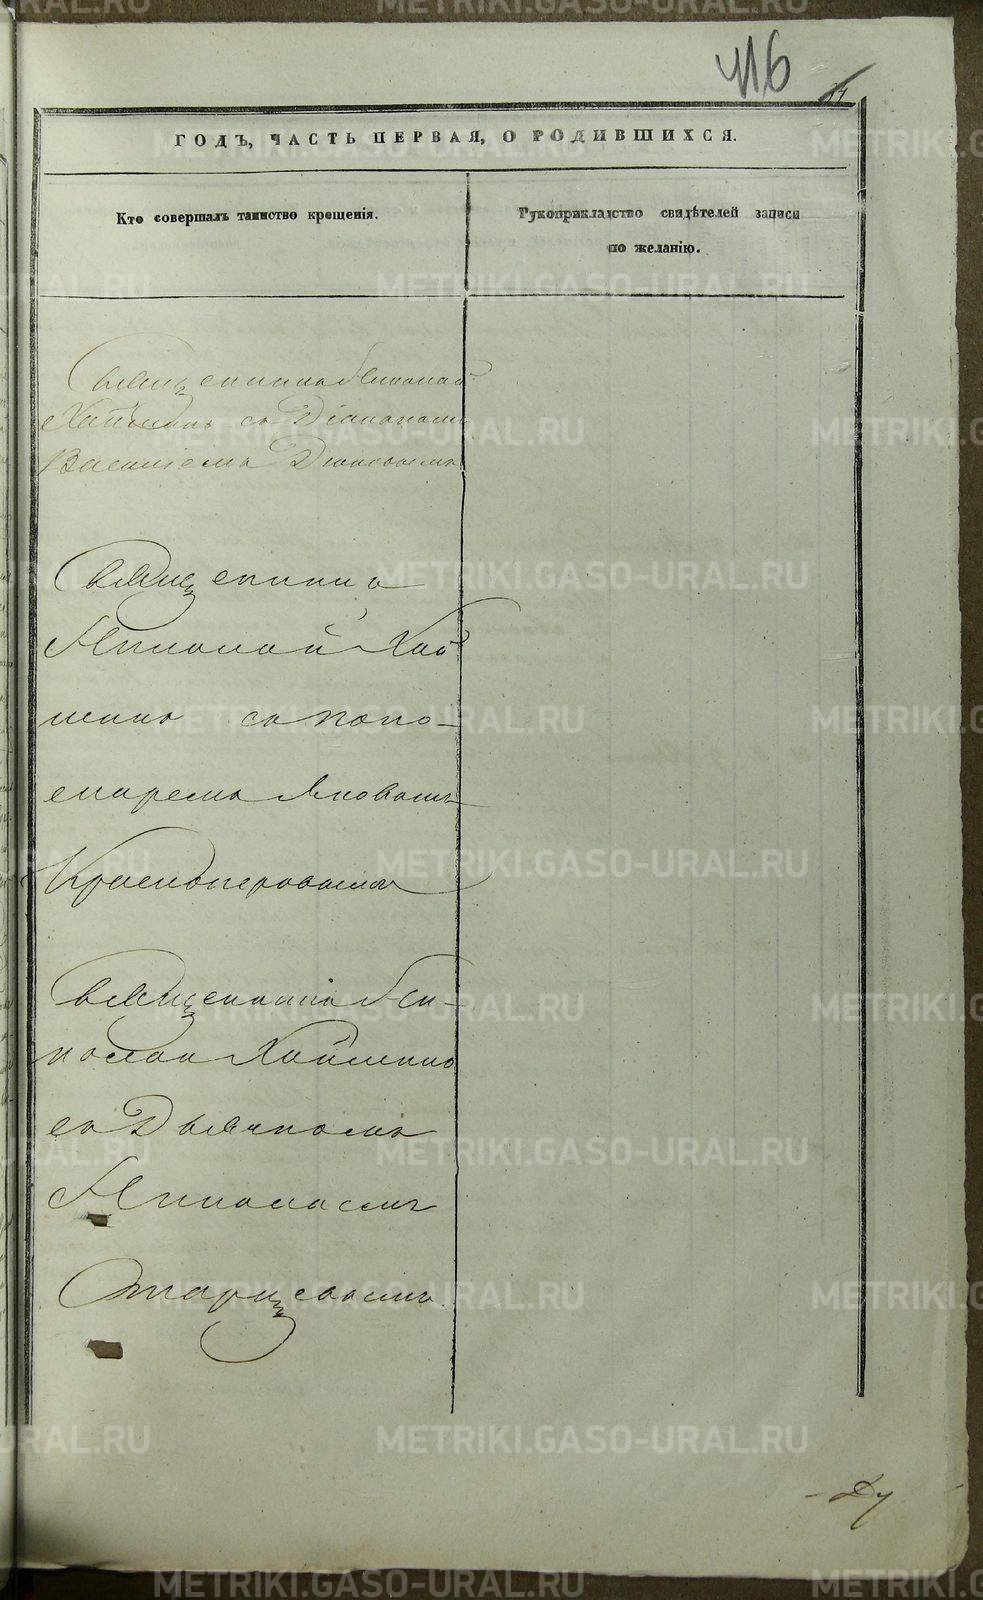 416
ГОДЪ, ЧАСТЬ ПЕРВАЯ, О РОДИВШИХСЯ.
Кто совершалъ таинство крещенія.
Рукоприкладство свидѣтелей записи
по желанію.
Священникъ Николай
съ Діакономъ
Василіемъ
Священникъ
Николай Хай
минъ съ поно-
маремъ Яковомъ
Красноперовымъ
Священникъ Ни-
колай Хайминъ
съ Дьячкомъ
Николаемъ
Старцовымъ
METRIKI.GASO-URAL.RU